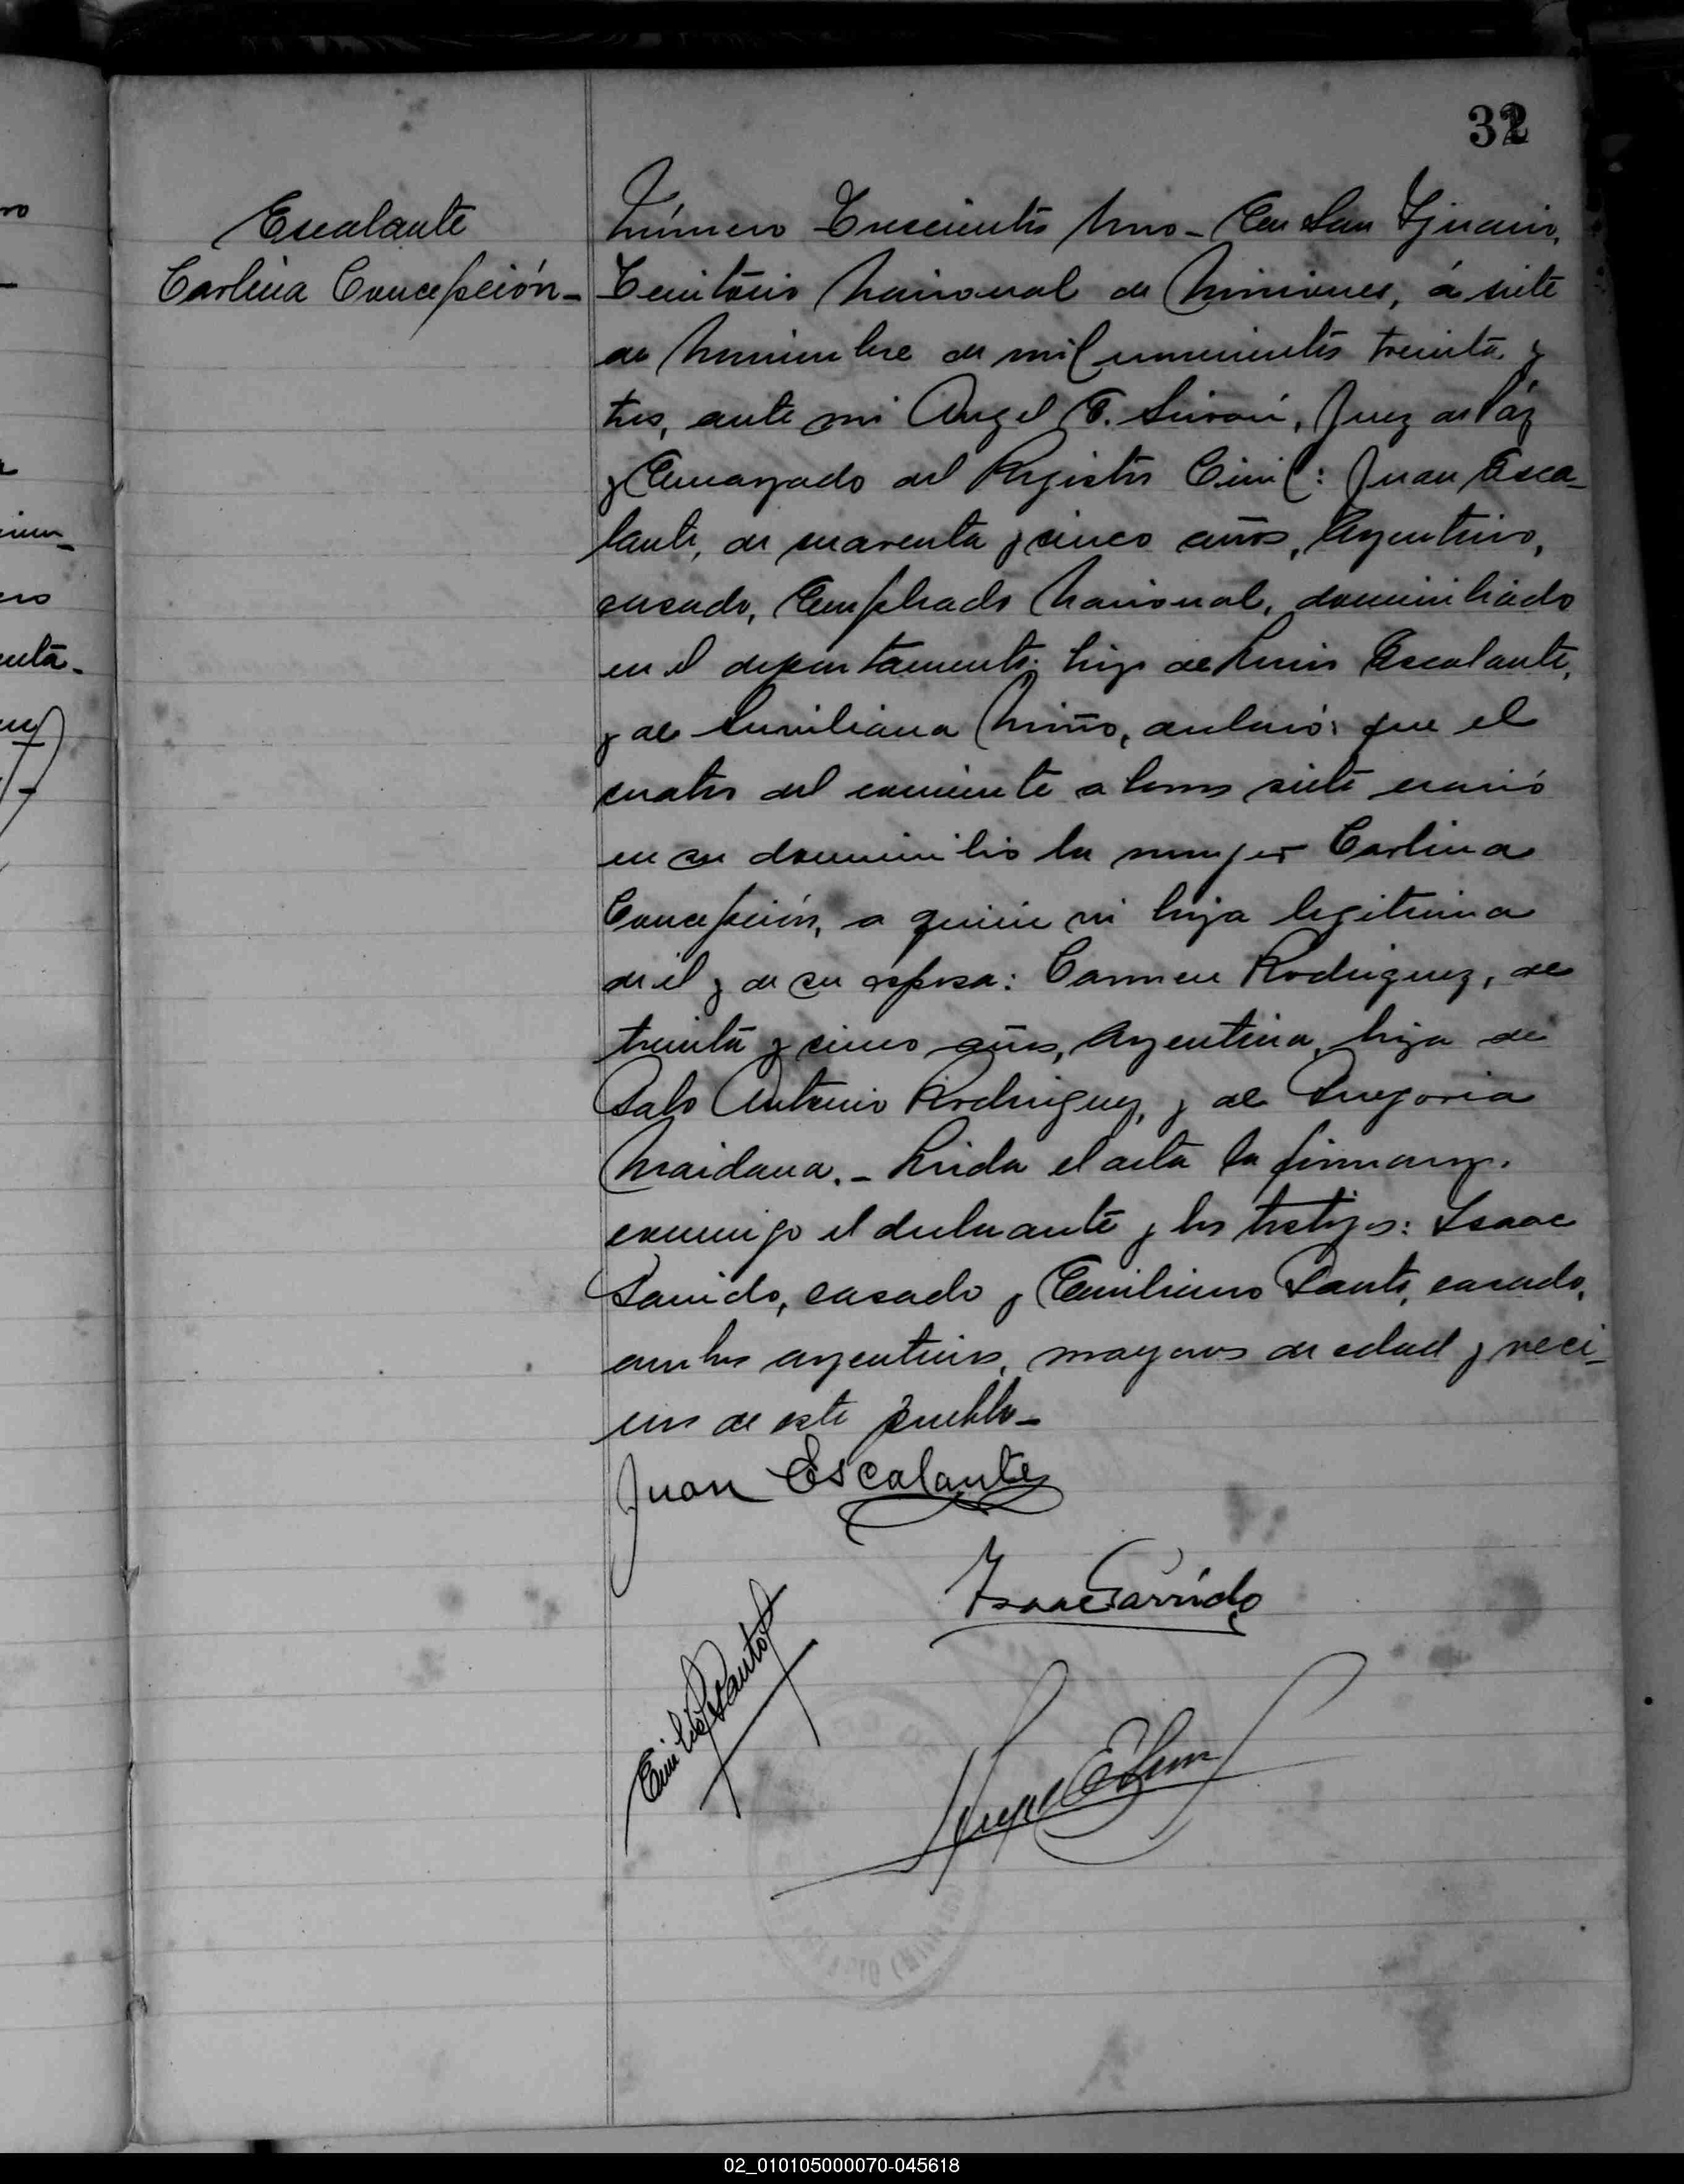 32
Escalante
Carlina Concepción-
Número Trescientos Uno- En San Ignacio,
Territorio Nacional de Misiones, á siete
de Noviembre de mil novecientos treinta y
tres, ante mi Angel E. Juez de Páz
y Encargado del Registro Civil: Juan Esca-
lante, de cuarenta y cinco años, Argentino,
casado, Empleado Nacional, domiciliado
en el departamento; hijo de Luis Escalante,
y de Niño, declaró: que el
cuatro del corriente a horas siete nació
en su domicilio la mujer Carlina
Concepción, a quien vi hija legitima
de él y de su esposa: Carmen Rodriguez, de
treinta y cinco años, Argentina, hija de
Antonio Rodriguez, y de Gregoria
Maidana.- Leida el acta la firmaron
conmigo el declarante y los testigos: Isaac
Garrido, casado y Emiliano Santo, casado,
ambos argentinos, mayores de edad y veci-
nos de este pueblo-
Juan Escalante
Isaac Garrido
Angel E
ro
cien-
nta-
02_010105000070-045618